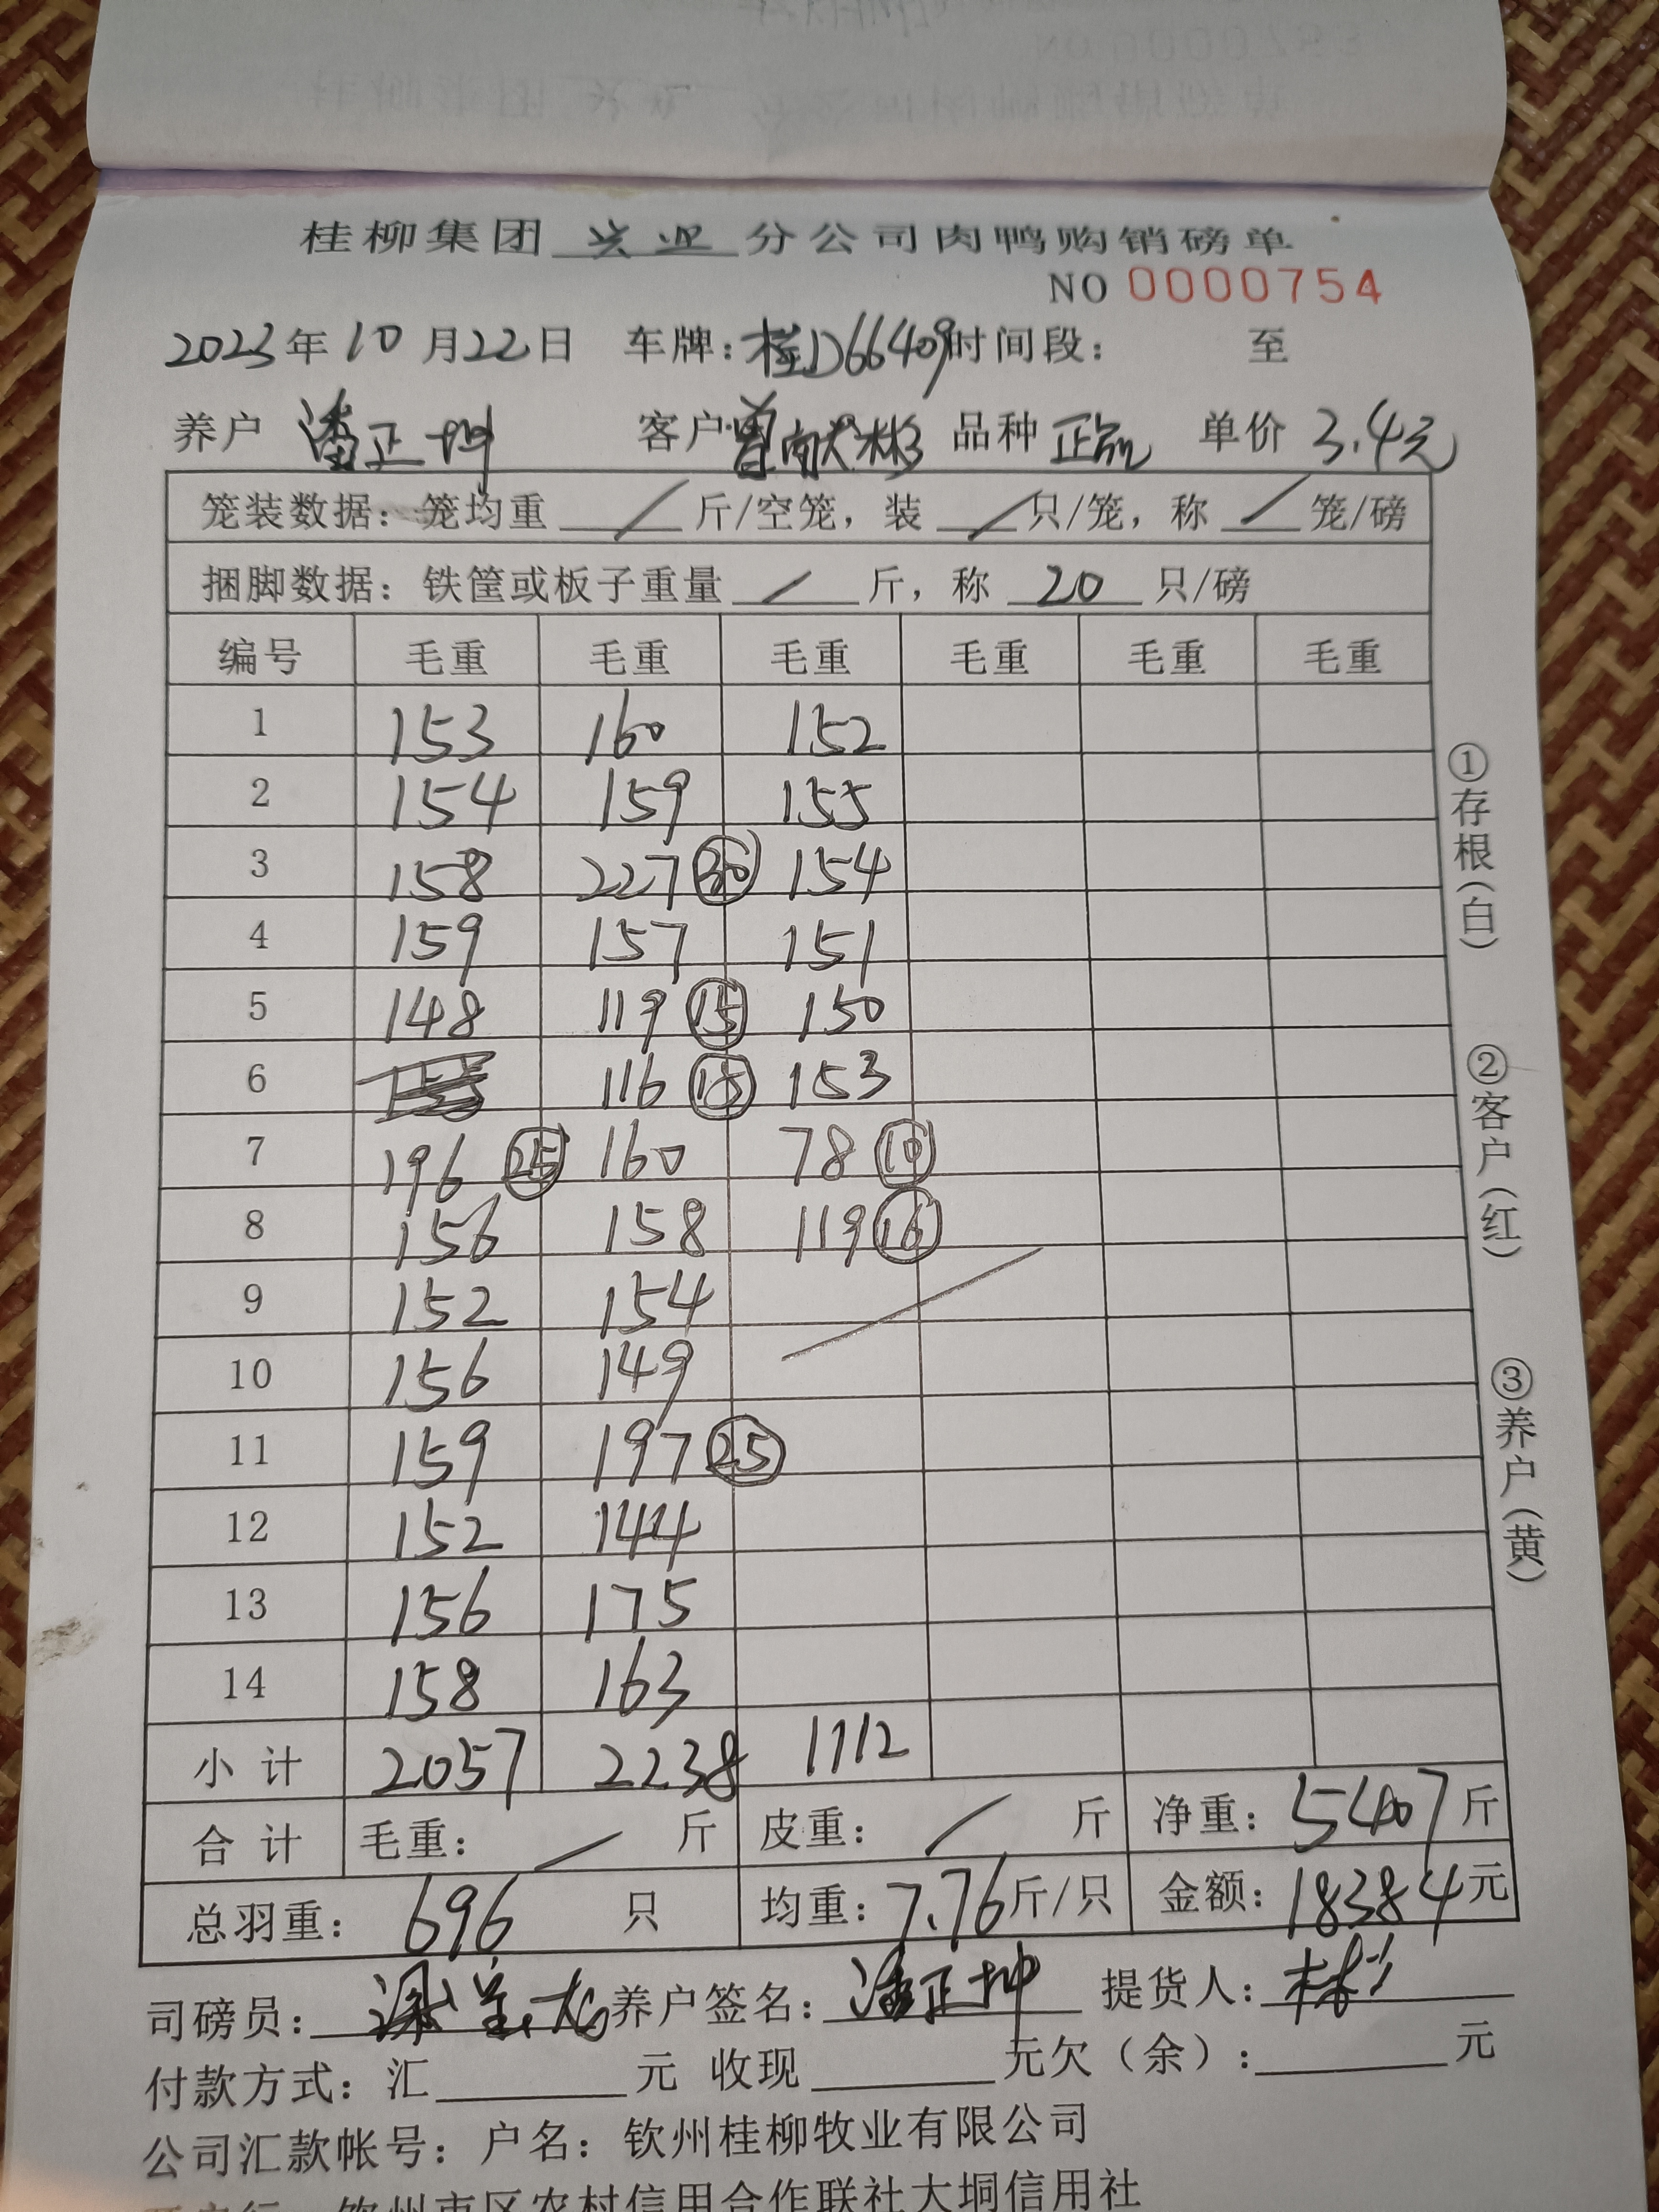 桂柳集团 兴业 分公司肉鸭购销磅单
NO 0000754
2023年10月22日 车牌:桂D66409时间段: 至
养户 潘正坤 客户 曾献彬 品种 正品 单价 3.4元
笼装数据:笼均重 / 斤/空笼,装 / 只/笼,称 / 笼/磅
捆脚数据:铁筐或板子重量 / 斤,称 20 只/磅
编号 毛重 毛重 毛重 毛重 毛重 毛重
1 153 160 152
2 154 159 155
3 158 227 30 154
4 159 157 151
5 148 119 15 150
6 116 15 153
7 196 25 160 78 10
8 156 158 119 16
9 152 154
10 156 149
11 159 197 25
12 152 144
13 156 175
14 158 163
小计 2057 2238 1112
合计 毛重: / 斤 皮重: / 斤 净重: 5407 斤
总羽重: 696 只 均重: 7.76 斤/只 金额: 18384 元
司磅员: 养户签名: 潘正坤 提货人: 彬
付款方式:汇 元 收现 元欠(余): 元
公司汇款帐号:户名:钦州桂柳牧业有限公司
钦州市区农村信用合作联社大垌信用社
①存根(白)
②客户(红)
③养户(黄)